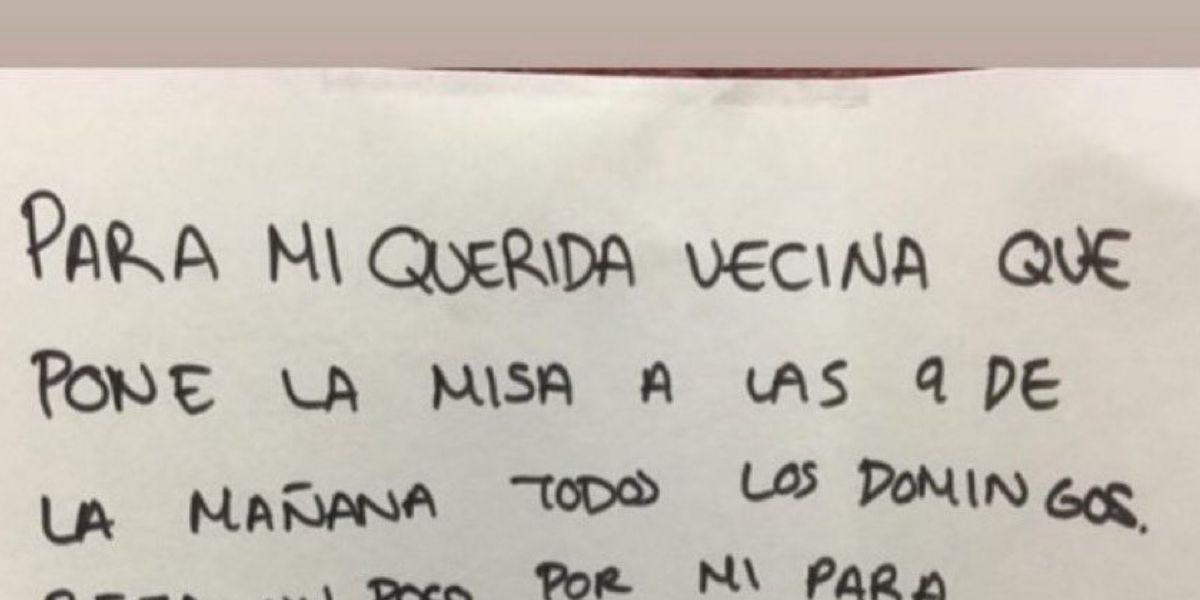 PARA MI QUERIDA VECINA QUE
PONE LA MISA A LAS 9 DE
LA MAÑANA TODOS LOS DOMINGOS.
UN POCO POR MI PARA